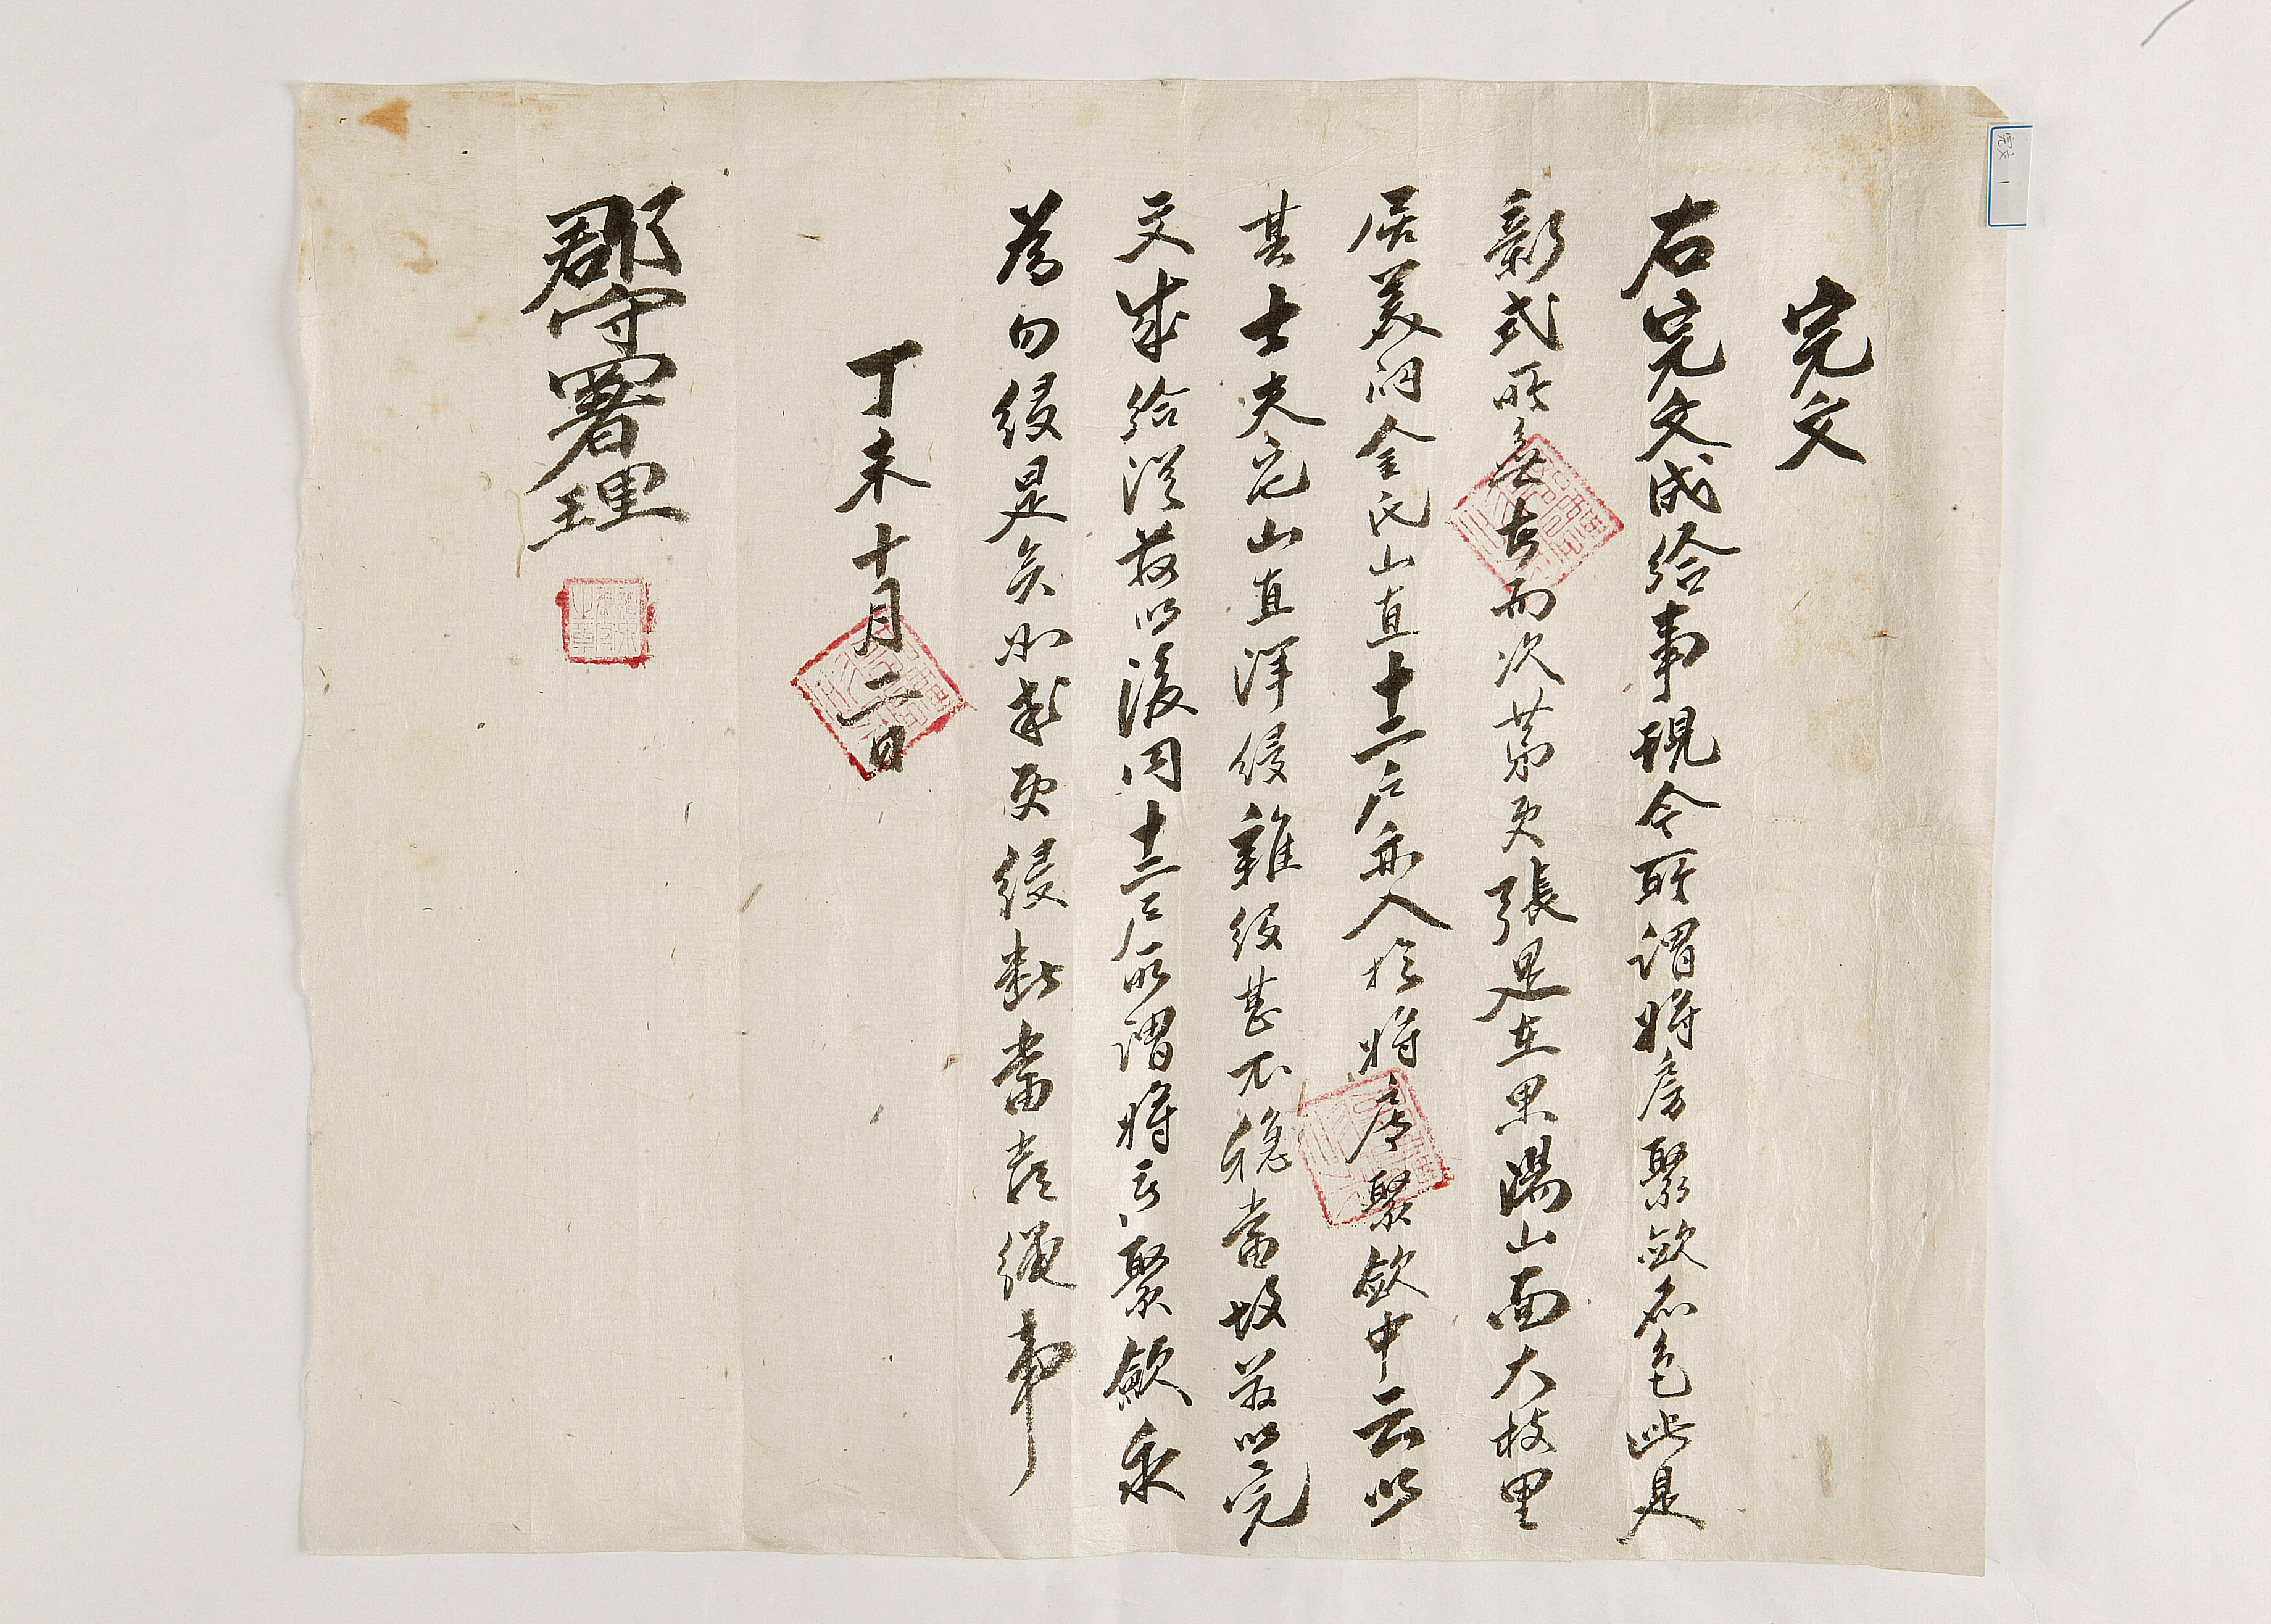 完文
右完文成給事現今所謂將房聚歛名色此是
新式所無古而次第更張是在果湯山面大枝里
居義洞金氏山直十二戶亦入於將房聚歛中云以
其士夫宅山直洋侵雜役甚不穩當故玆以完
文成給從玆以後同十二戶所謂將房聚歛永
為勿侵是矣如或更侵斷當嚴繩事
丁未十月二日
郡守署理
完文 1